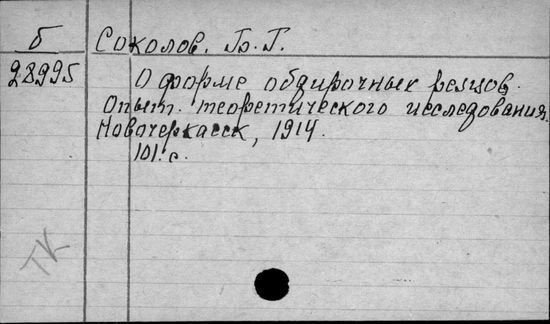 Б Соколов, Б.Г.
28995
О форме обдирочных резцов.
Опыт теоретического исследования.
Новочеркасск, 1914.
101 с.
ТК